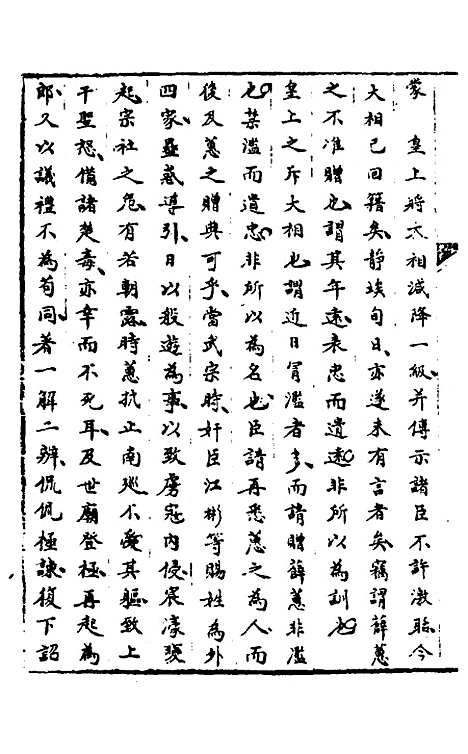 蒙　皇上將大相減降一級并傳示諸臣不許激聒今
大相已回籍矣靜埃旬日亦遂未有言者矣竊謂薛蕙
之不准贈也謂其年遠未忠而遺遠非所以為訓也
皇上之斥大相也謂近日冒濫者多而請贈薛蕙非濫
也禁濫而遺忠非所以為名也臣請再悉蕙之為人而
後及蕙之贈典可乎當武宗時奸臣江彬等賜姓為外
四家蠱惑導引日以般遊為事以致虜寇內侵宸濠
起宗社之危有若朝露時蕙抗止南廵不愛其軀致上
干聖怒備諸楚毒亦幸而不死耳及世廟登極再起為
郎又以議禮不為苟同著一解二辨侃侃極諫復下詔